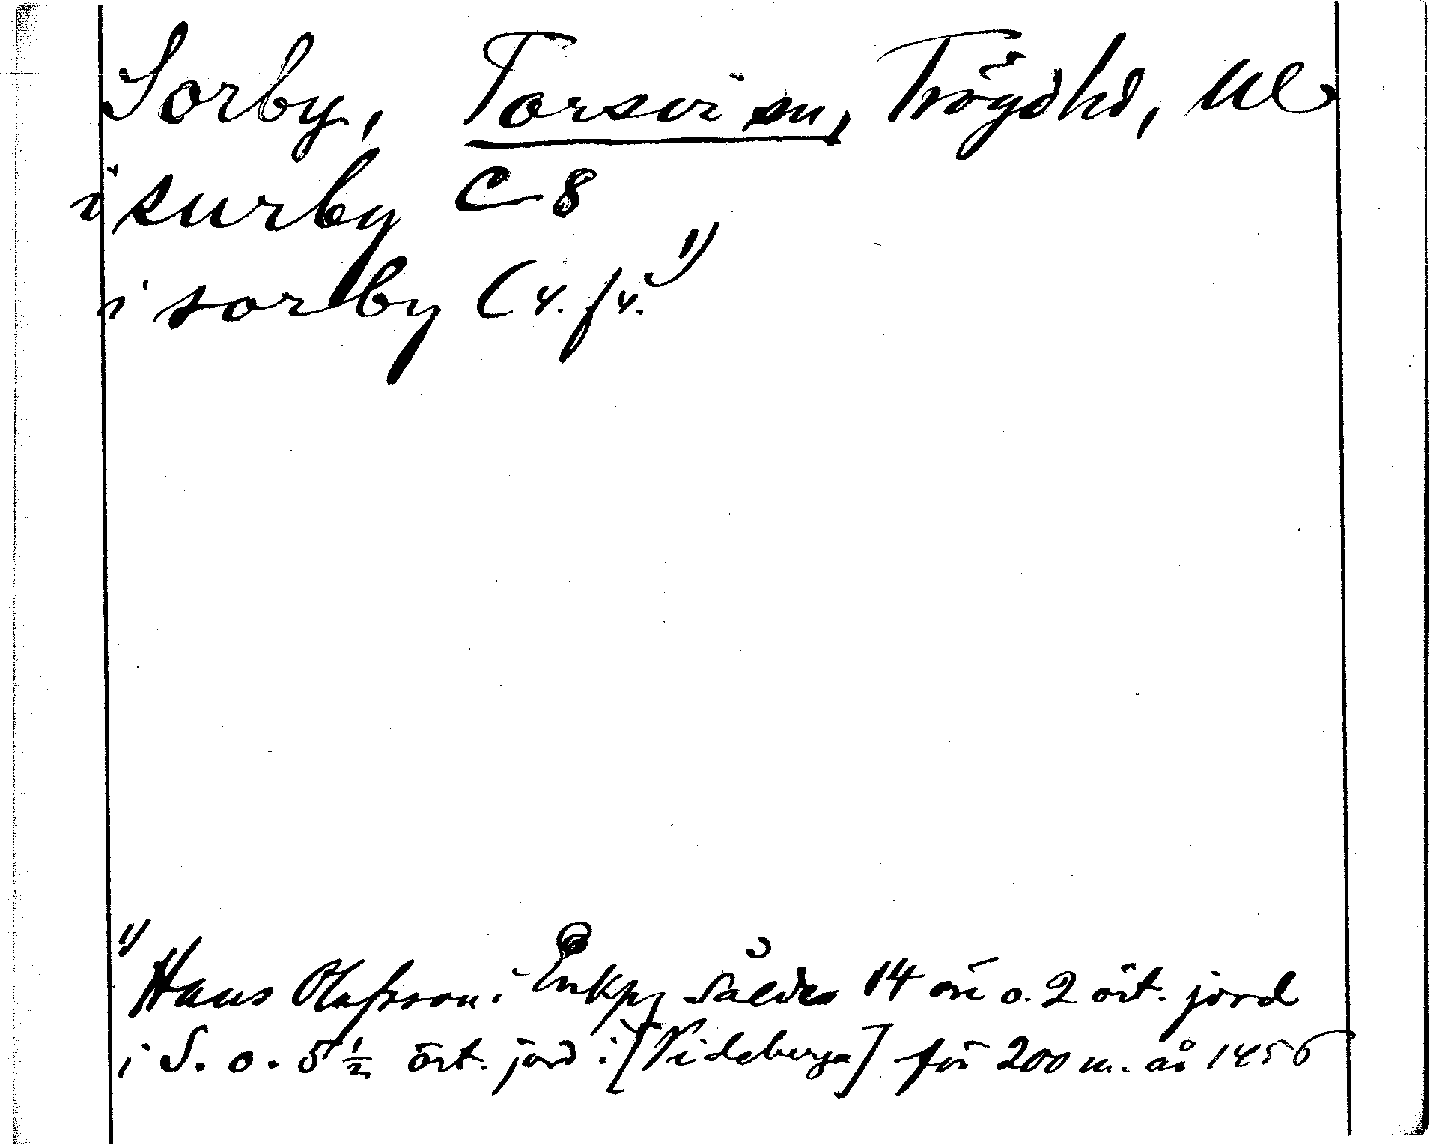 Sorby, Torsvi sn, Trögds hd, Ul
i surby C 8
i sorby C 4. f 4. 1)
1) Hans Olafsson i Enkpg sålde 14 öre o. 2 ört. jord
i S. o. 5 1/2 ört. jord i [Videberga] för 200 m. år 1456